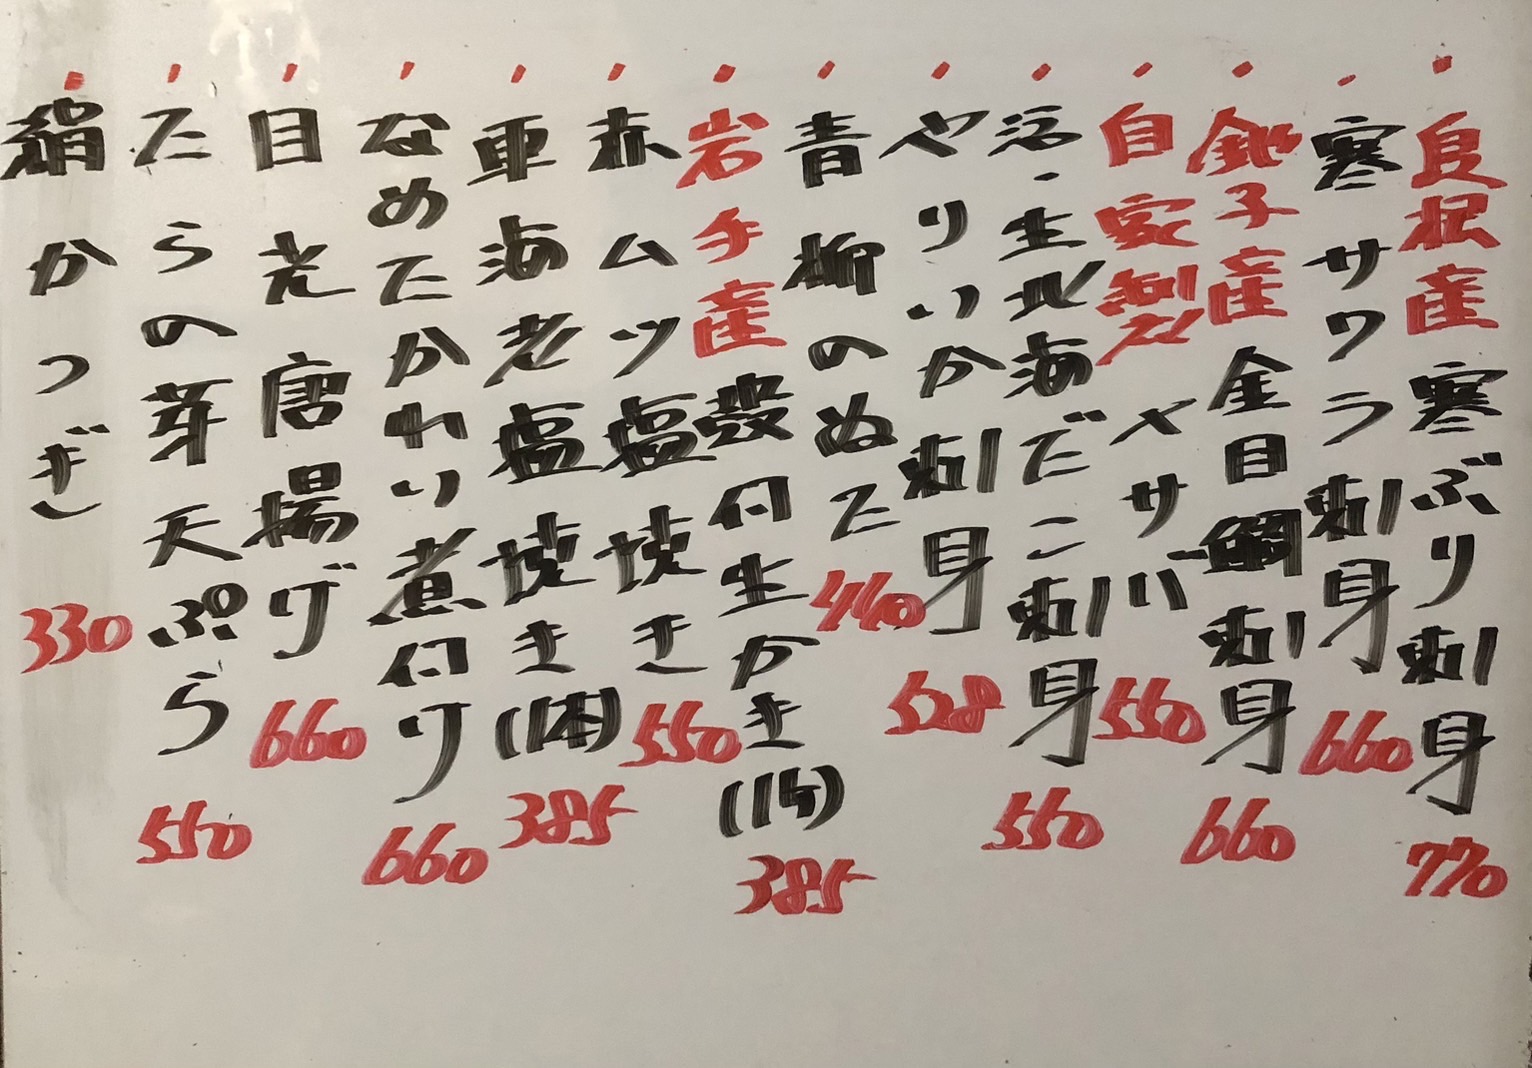 良根産 寒ぶり刺身 770
寒サワラ刺身 660
銚子産 金目鯛刺身 660
自家製 〆サバ 550
活・生北海だこ刺身 550
やりいか刺身 528
青柳のぬた 440
岩手産 殻付生かき(1ヶ) 385
赤ムツ塩焼き 550
車海老塩焼き(1本) 385
なめたかれい煮付け 660
目光唐揚げ 660
たらの芽天ぷら 550
絹かつぎ 330